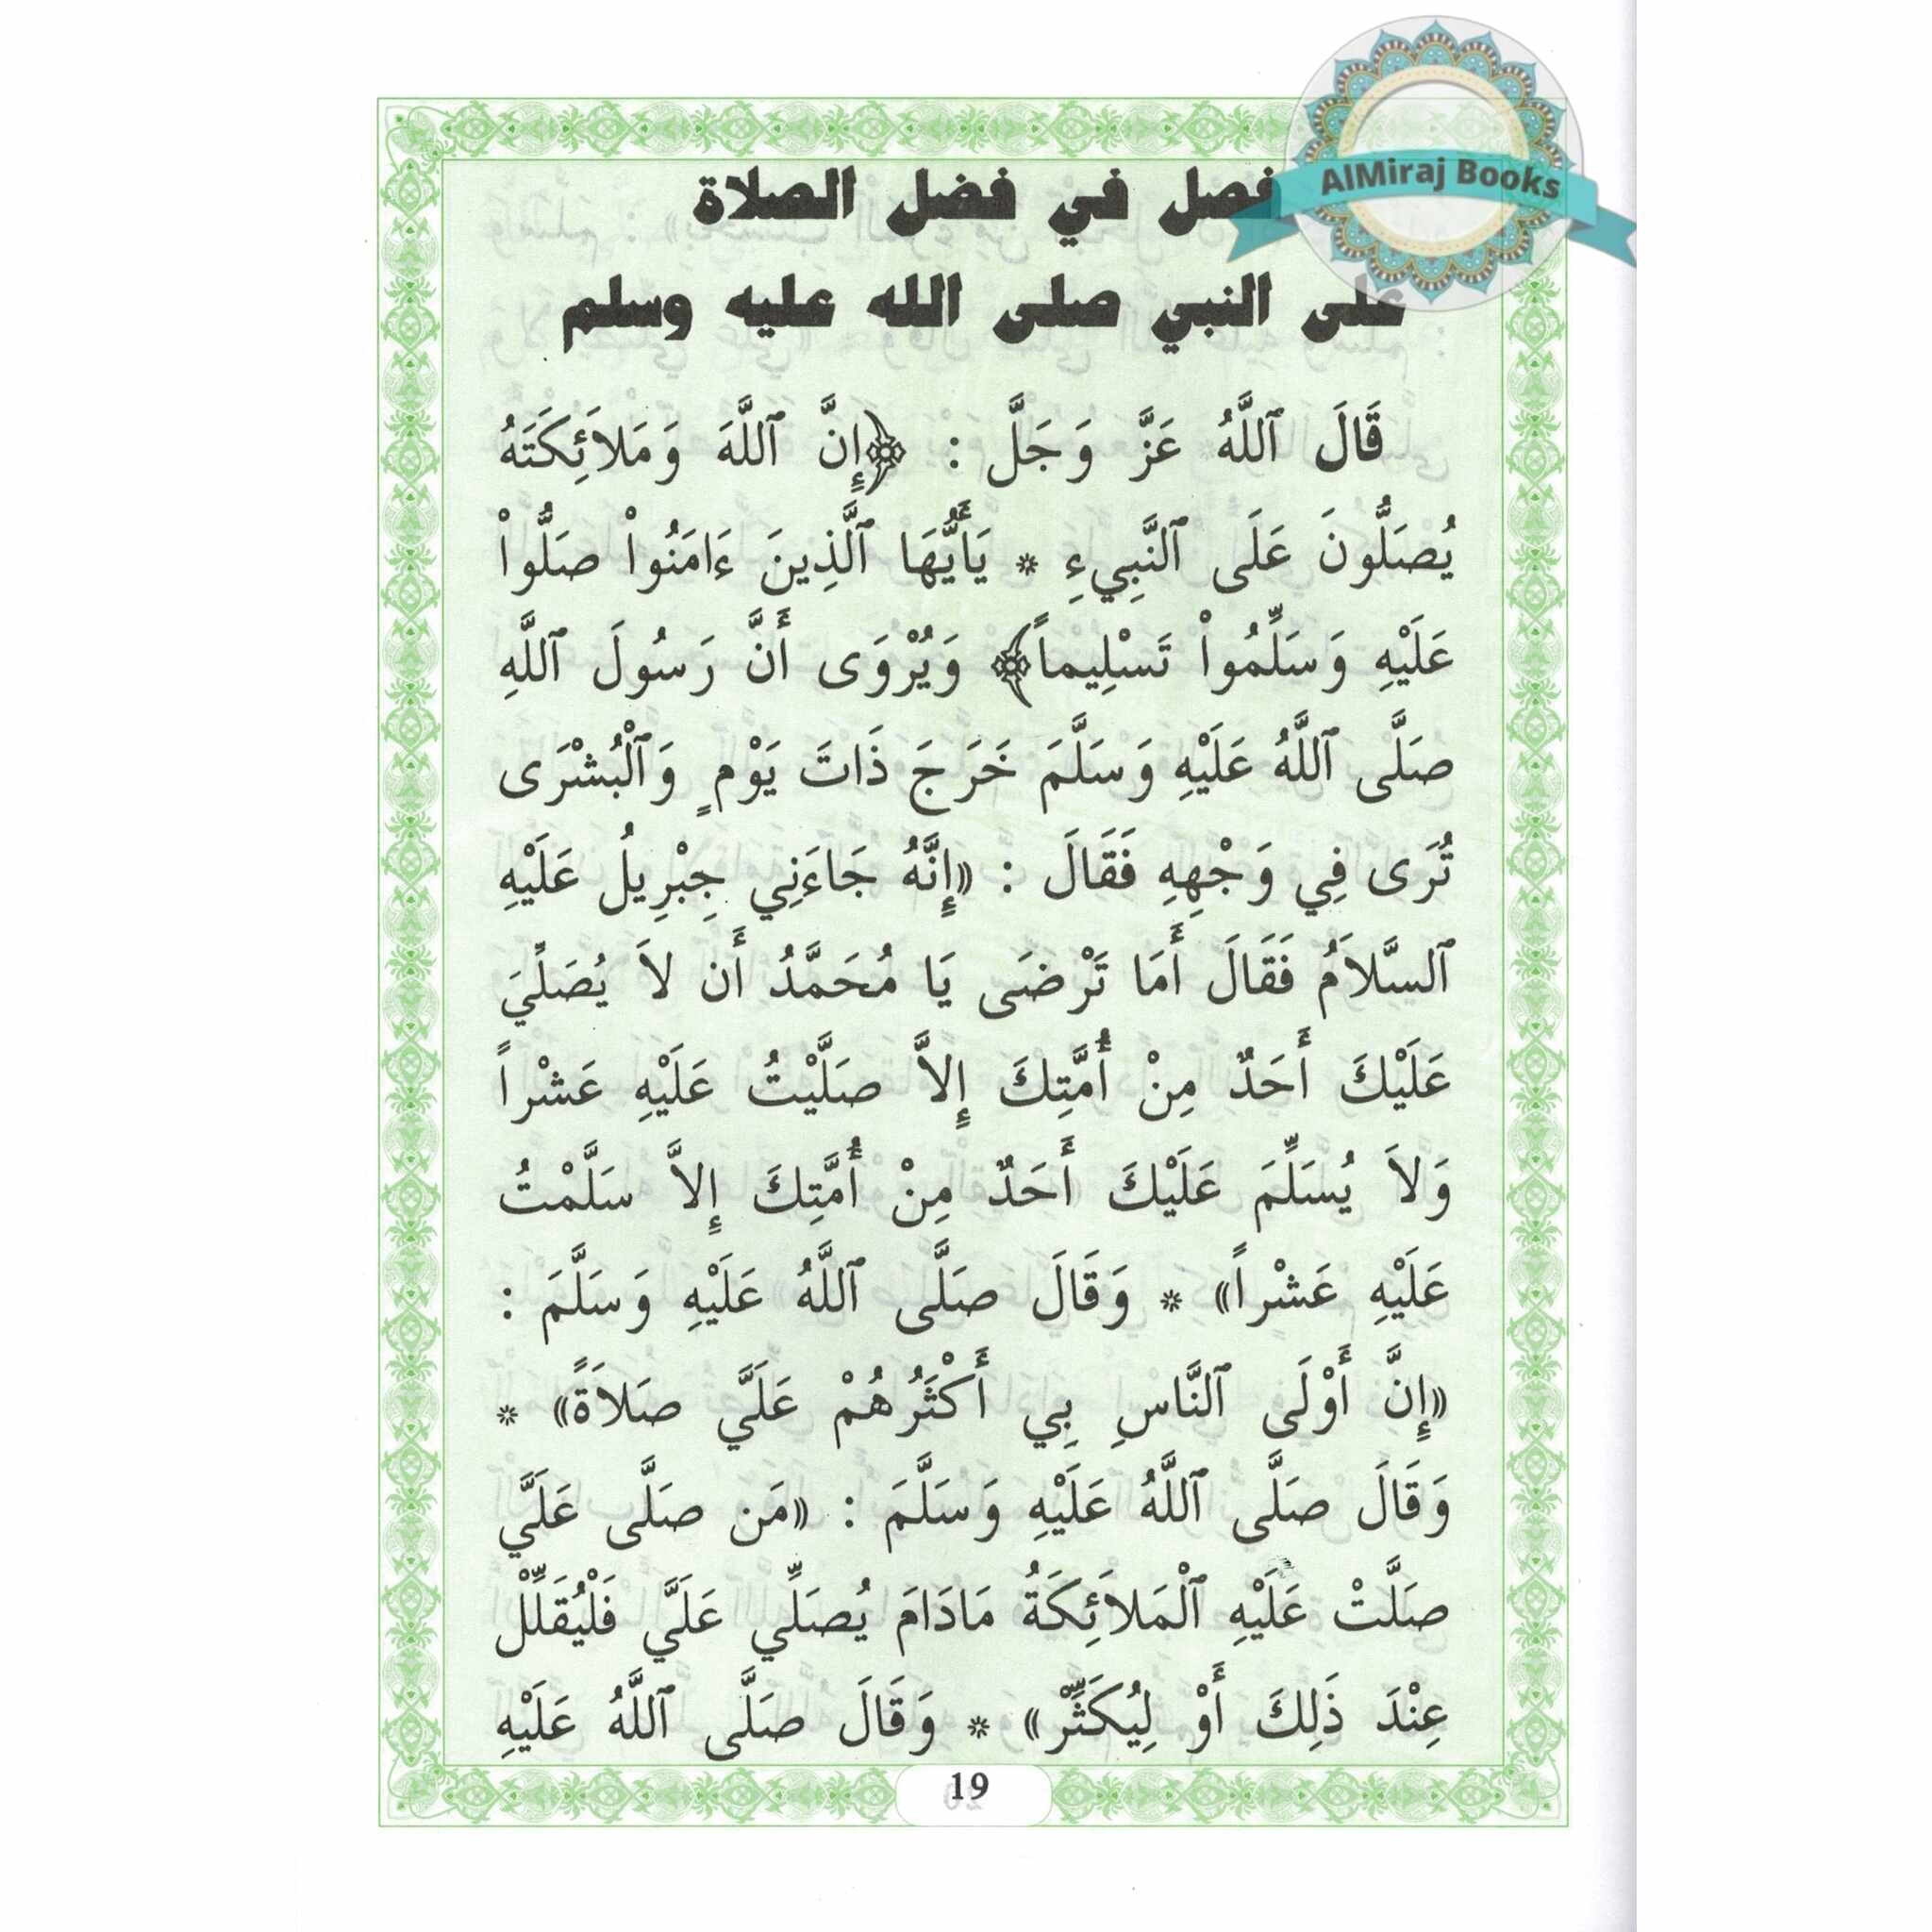 AlMiraj Books
فصل في فضل الصلاة
على النبي صلى الله عليه وسلم
قَالَ ٱللَّهُ عَزَّ وَجَلَّ : ﴿إِنَّ ٱللَّهَ وَمَلَائِكَتَهُ
يُصَلُّونَ عَلَى ٱلنَّبِيءِ * يَأَيُّهَا ٱلَّذِينَ ءَامَنُواْ صَلُّواْ
عَلَيْهِ وَسَلِّمُواْ تَسْلِيماً﴾ وَيُرْوَى أَنَّ رَسُولَ ٱللَّهِ
صَلَّى ٱللَّهُ عَلَيْهِ وَسَلَّمَ خَرَجَ ذَاتَ يَوْمٍ وَٱلْبُشْرَى
تُرَى فِي وَجْهِهِ فَقَالَ : «إِنَّهُ جَاءَنِي جِبْرِيلُ عَلَيْهِ
ٱلسَّلَامُ فَقَالَ أَمَا تَرْضَى يَا مُحَمَّدُ أَن لاَ يُصَلِّيَ
عَلَيْكَ أَحَدٌ مِنْ أُمَّتِكَ إِلاَّ صَلَّيْتُ عَلَيْهِ عَشْراً
وَلاَ يُسَلِّمَ عَلَيْكَ أَحَدٌ مِنْ أُمَّتِكَ إِلاَّ سَلَّمْتُ
عَلَيْهِ عَشْراً» * وَقَالَ صَلَّى ٱللَّهُ عَلَيْهِ وَسَلَّمَ :
«إِنَّ أَوْلَى ٱلنَّاسِ بِي أَكْثَرُهُمْ عَلَيَّ صَلاَةً» *
وَقَالَ صَلَّى ٱللَّهُ عَلَيْهِ وَسَلَّمَ : «مَن صَلَّى عَلَيَّ
صَلَّتْ عَلَيْهِ ٱلْمَلاَئِكَةُ مَادَامَ يُصَلِّي عَلَيَّ فَلْيُقَلِّلْ
عِنْدَ ذَلِكَ أَوْ لِيُكَثِّرْ» * وَقَالَ صَلَّى ٱللَّهُ عَلَيْهِ
19